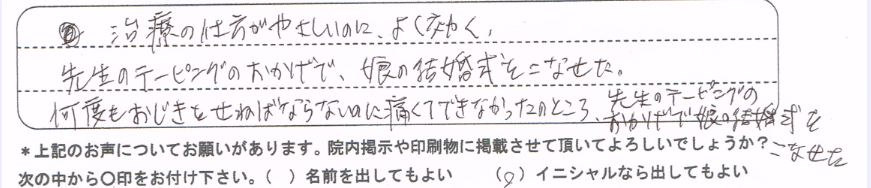 ② 治療の仕方がやさしいのに、よく効く、
先生のテーピングのおかげで、娘の結婚式をこなせた。
何度もおじぎをせねばならないのに痛くてできなかったのところ、先生のテーピングの
おかげで娘の結婚式を
こなせた
*上記のお声についてお願いがあります。院内掲示や印刷物に掲載させて頂いてよろしいでしょうか?
次の中から○印をお付け下さい。( ) 名前を出してもよい (○) イニシャルなら出してもよい